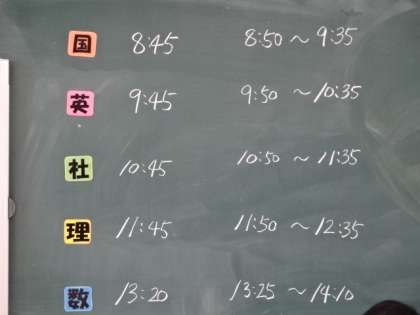 国 8:45 8:50～9:35
英 9:45 9:50～10:35
社 10:45 10:50～11:35
理 11:45 11:50～12:35
数 13:20 13:25～14:10